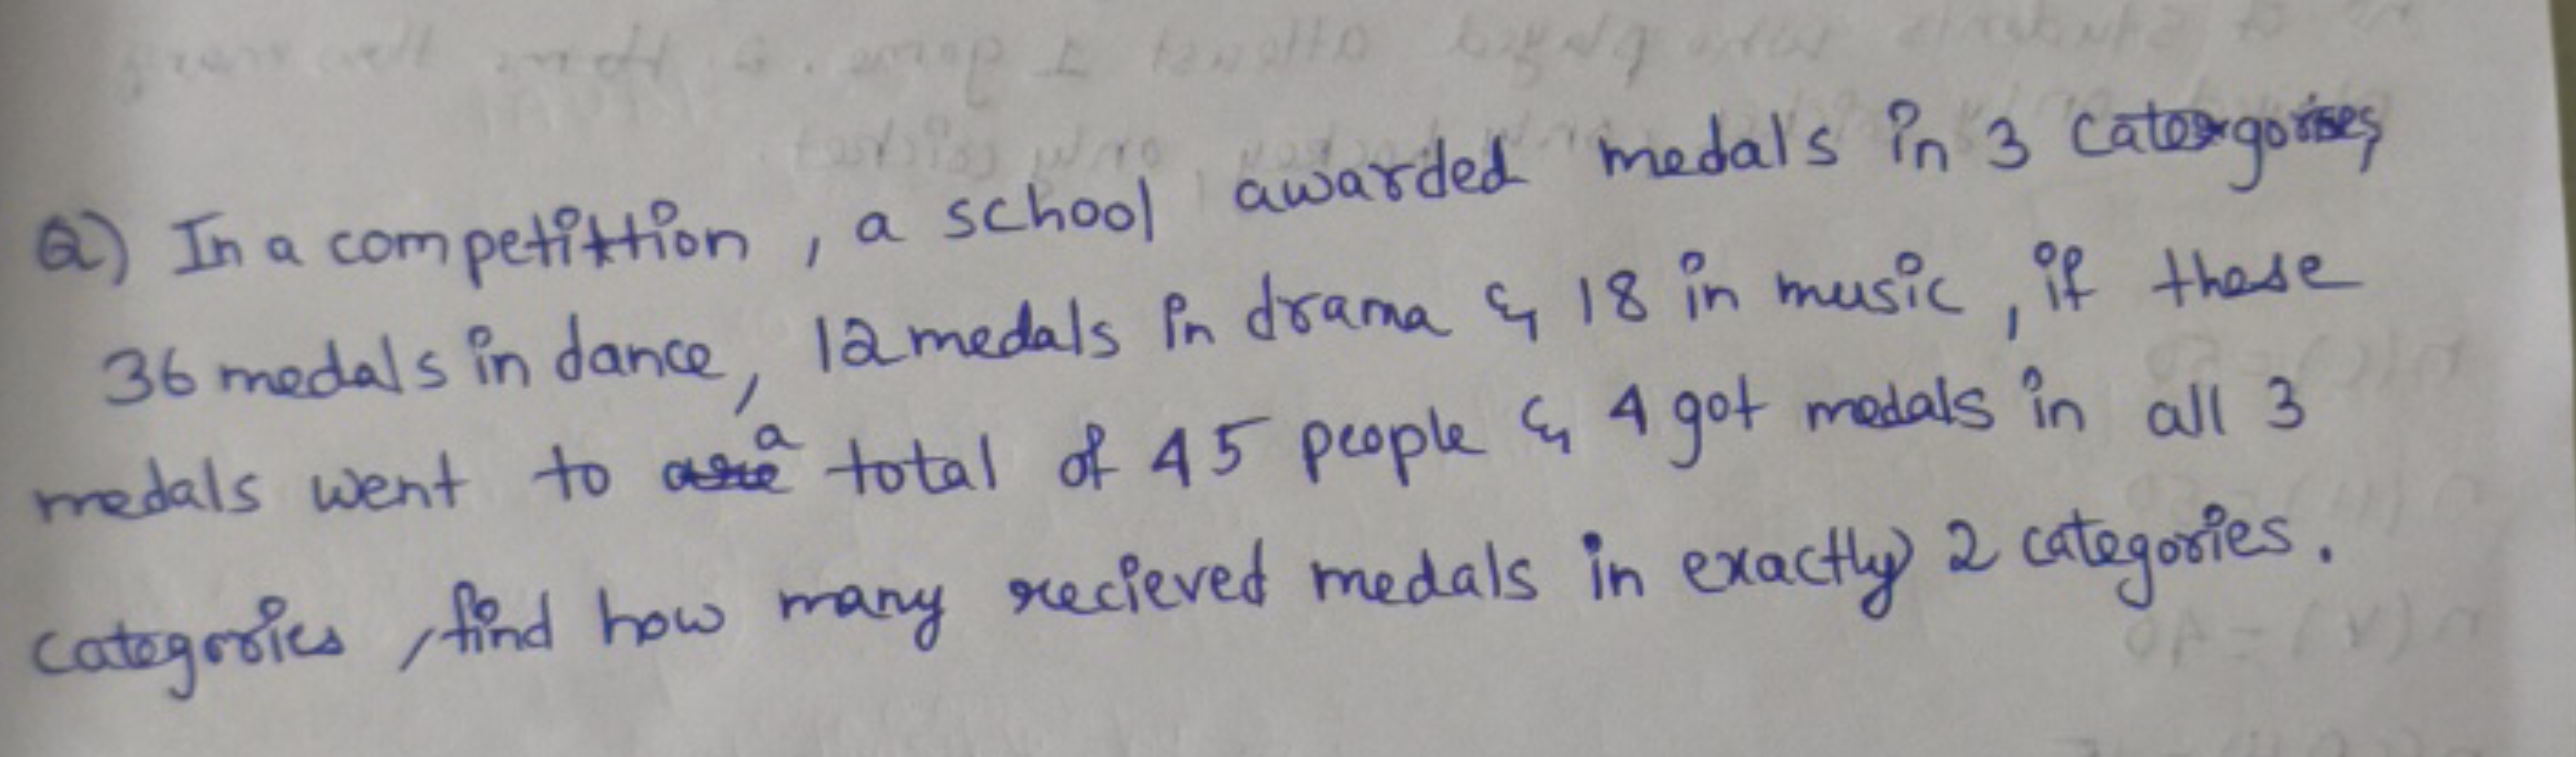 Q) In a competittion, a school awarded medals in 3 categories,
36 medals in dance, 12 medals in drama & 18 in music, if these
medals went to a total of 45 people & 4 got medals in all 3
categories, find how many recieved medals in exactly 2 categories.